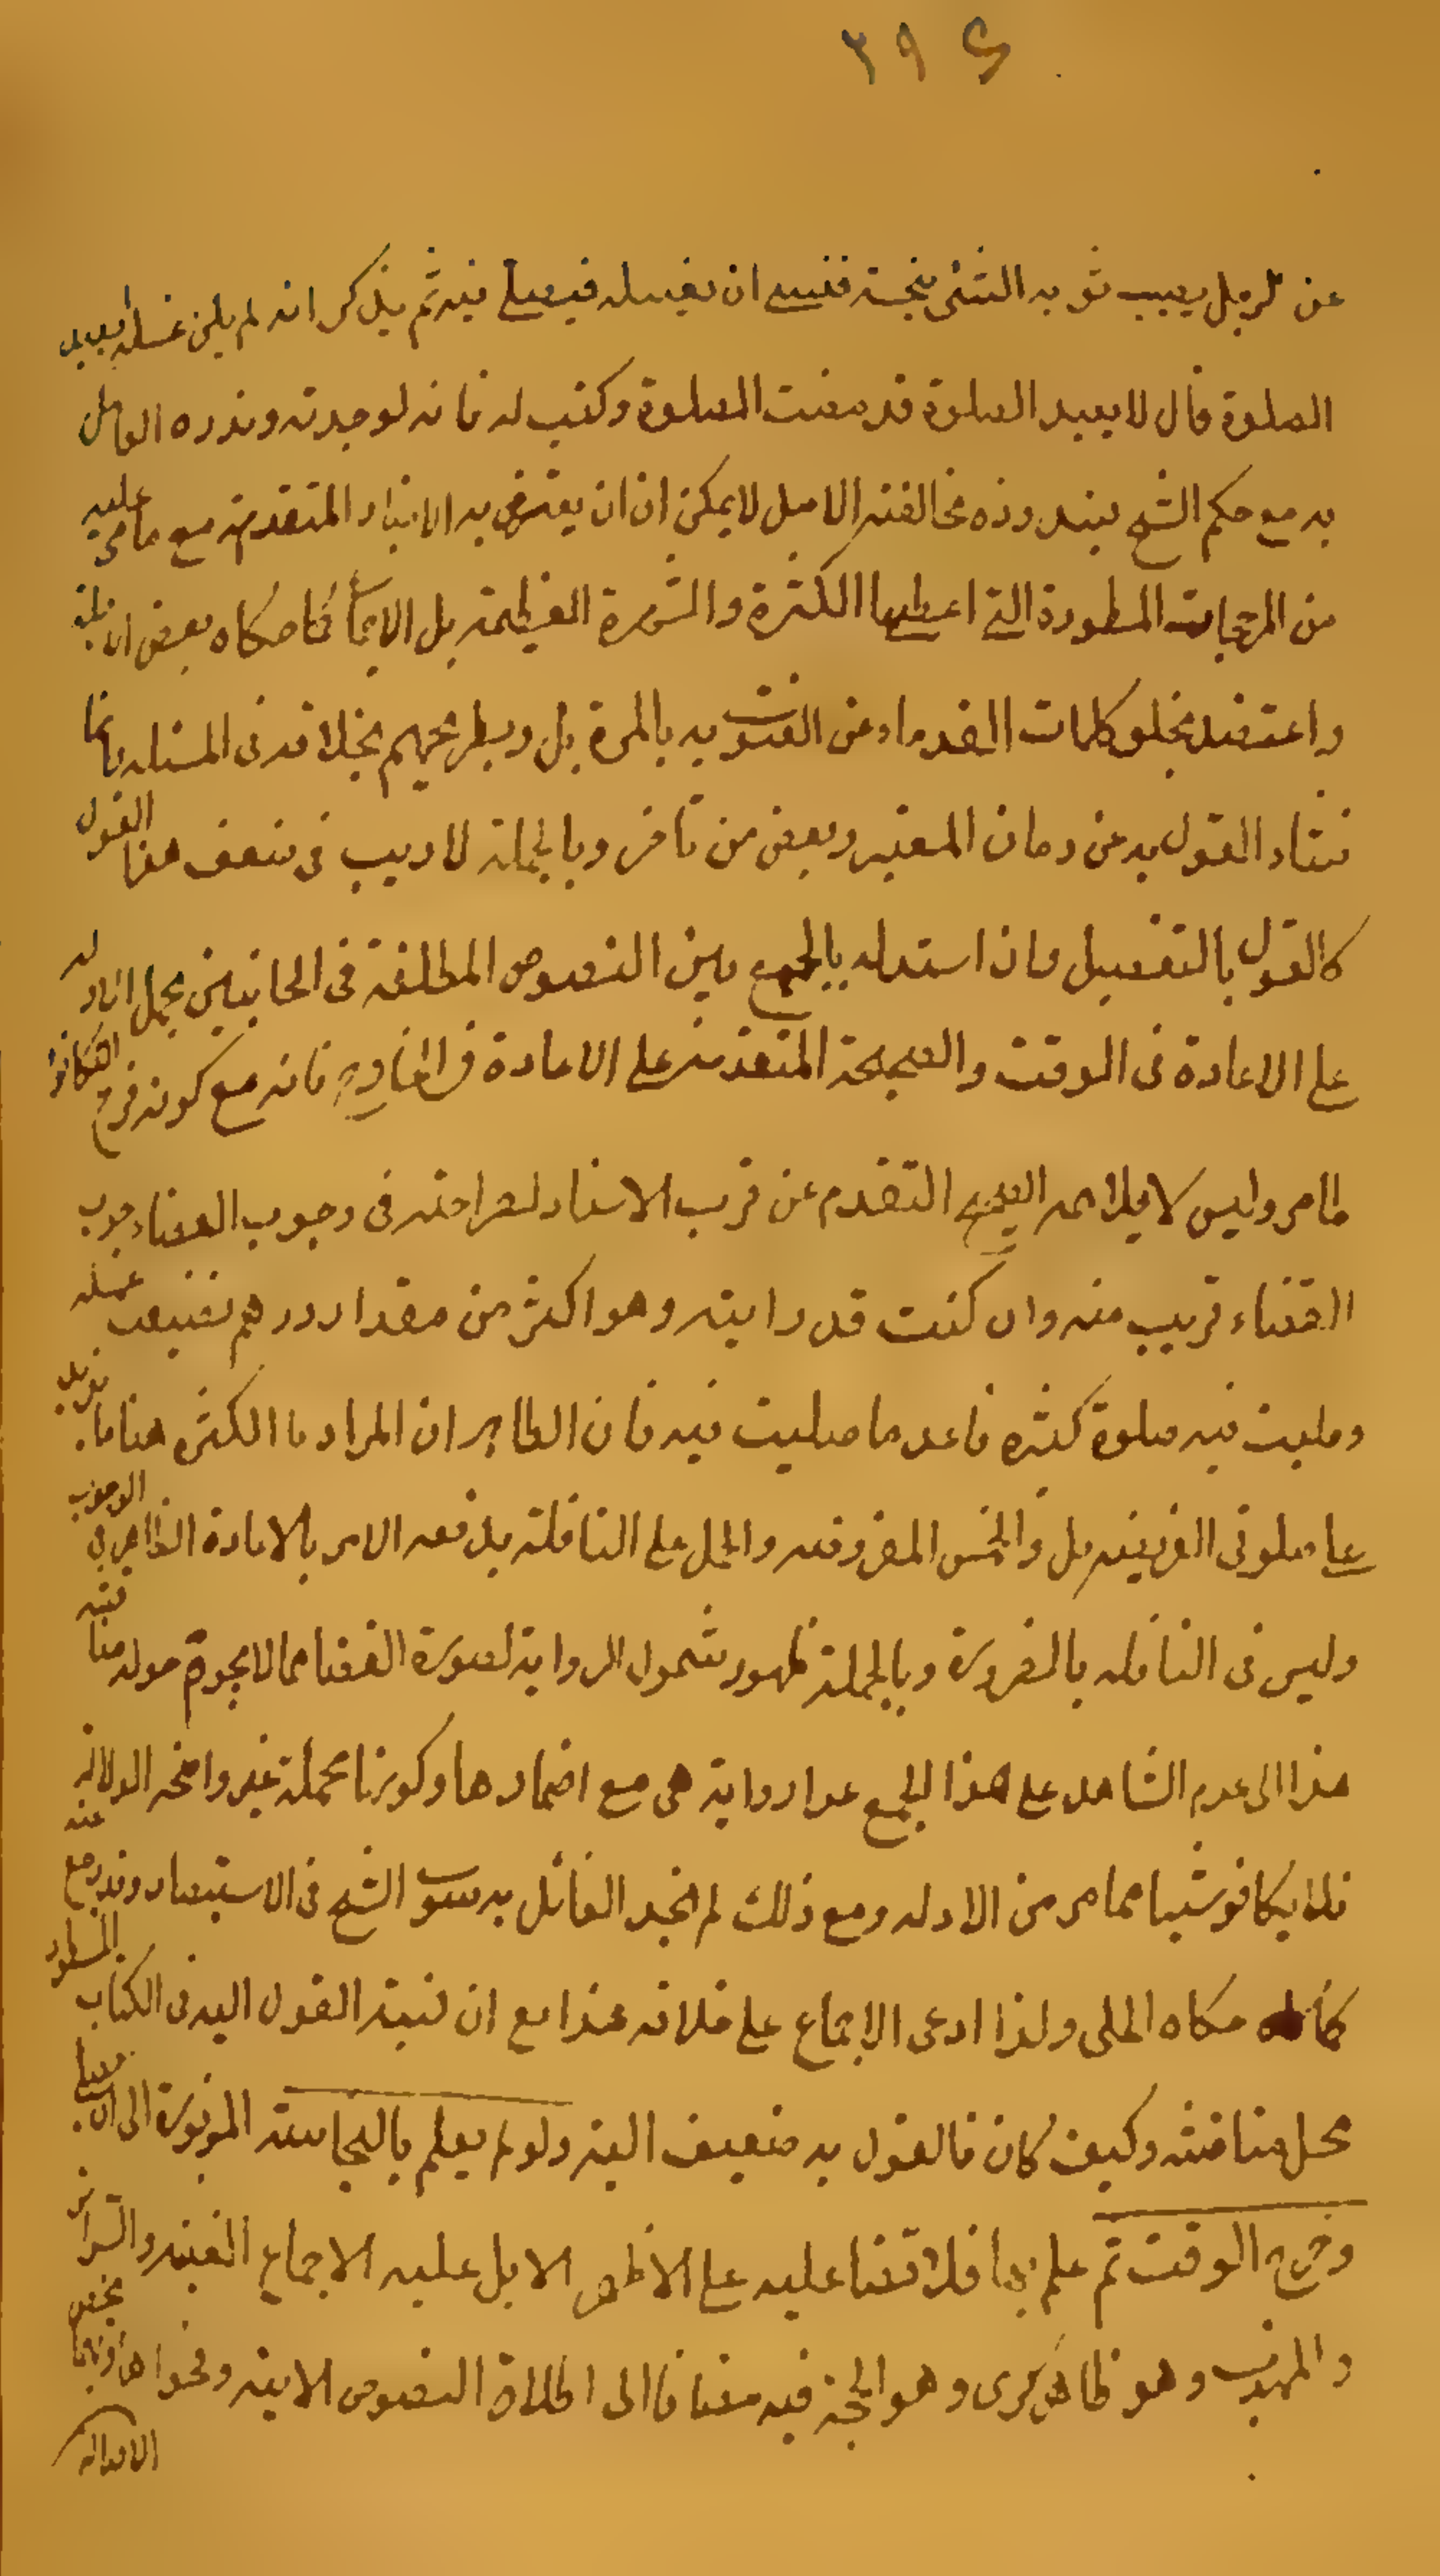 ٣٩٤
عن الرجل يصيب ثوبه الشئ ينجسه فينسى ان يغسله فيصلى فيه ثم يذكر انه لم يكن غسله ايعيد
الصلوة قال لا يعيد الصلوة قد مضت الصلوة وكتب له فانه لوحدته وندره العامل
به مع حكم الشيخ بشذوذه مخالفته الاصل لا يمكن ان يعترض به الاخبار المتقدمة مع ما هى عليه
من المرجحات المسطورة التى اعظمها الكثرة والشهرة العظيمة بل الاجماع كما حكاه بعض الاجلة
واعتضد بخلو كلمات القدماء عن الفتوى به بالمرة بل وتصريحهم بخلافه فى المسئله وانما
نشاء القول به عن زمان المعتبر وبعض من تاخر وبالجملة لا ريب فى ضعف هذا القول
كالقول بالتفصيل وان استدل له بالجمع بين النصوص المطلقة فى الجانبين بحمل الاول
على الاعادة فى الوقت والصحيحة المتقدمة على الاعادة فى الخارج فانه مع كونه فرع التكافؤ
كما مر وليس لا يلائمه الصحيح المتقدم عن قرب الاسناد لصراحته فى وجوب القضاء وجوب
القضاء قريب منه وان كنت قد رايته وهو اكثر من مقدار درهم فضيعت غسله
وصليت فيه صلوة كثيرة فاعد ما صليت فيه فان الظاهر ان المراد بالكثرة هنا ما يزيد
على صلوتى الفريضه بل والخمس المفروضه والحمل على النافلة يدفعه الامر بالاعادة الظاهر فى الوجوب
وليس فى النافله بالضرورة وبالجملة ظهور شمول الرواية لصورة القضا مما لا يحوم حوله شبهة
هذا الى عدم الشاهد على هذا الجمع عدا رواية هى مع اضمارها وكونها مجملة غير واضحه الدلالة
فلا يكافو شيئا مما مر من الادله ومع ذلك لم نجد القائل به سوى الشيخ فى الاستبصار وندر مع عنه
كما حكاه الحلى ولذا ادعى الاجماع على خلافه هذا مع ان نسبة القول اليه فى الكتاب المسطور
محل مناقشة وكيف كان فالقول به ضعيف البتة ولو لم يعلم بالنجاسة المزبورة الى ان صلى
وخرج الوقت ثم علم بها فلا قضا عليه على الاظهر الا بل عليه الاجماع الغنيه والسرائر
والمهذب وهو ظاهر ى وهو الحجة فيه مضافا الى اطلاق النصوص الاتيه وفحواها
الاصالة